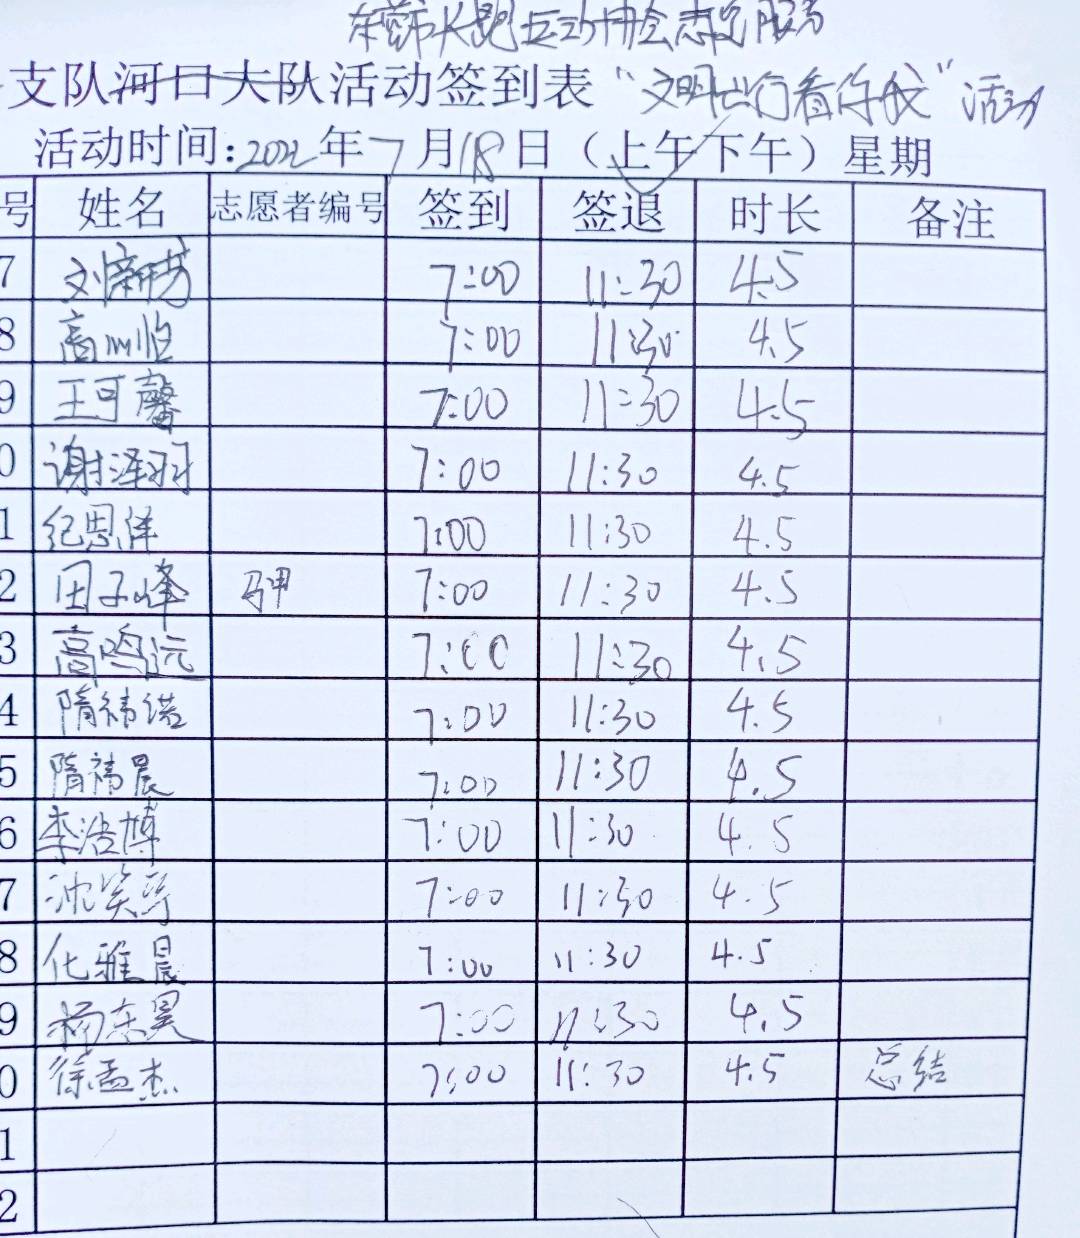 东营市长跑运动协会志愿服务
支队河口大队活动签到表 "文明出行看你我" 活动
活动时间:2022年7月18日（上午下午）星期
号 姓名 志愿者编号 签到 签退 时长 备注
7 7:00 11:30 4.5
8 7:00 11:30 4.5
9 王可馨 7:00 11:30 4.5
0 谢泽羽 7:00 11:30 4.5
1 纪恩佯 7:00 11:30 4.5
2 田子峰 马甲 7:00 11:30 4.5
3 高鸣远 7:00 11:30 4.5
4 隋祎诺 7:00 11:30 4.5
5 隋祎晨 7:00 11:30 4.5
6 李浩博 7:00 11:30 4.5
7 7:00 11:30 4.5
8 化雅晨 7:00 11:30 4.5
9 杨东昊 7:00 11:30 4.5
0 徐孟杰 7:00 11:30 4.5 总结
1
2